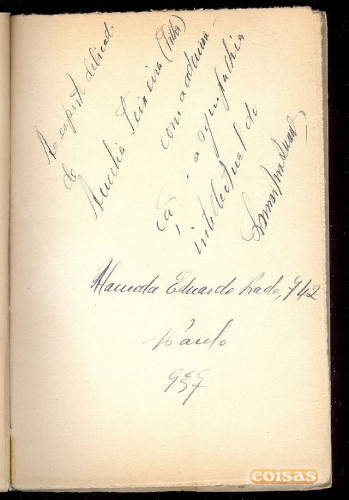 Ao espirito delicado
de
Amelia Teixeira (Filho)
com a admira-
ção, a sympathia
intellectual de
Alameda Eduardo Prado, 742
S Paulo
937
coisas